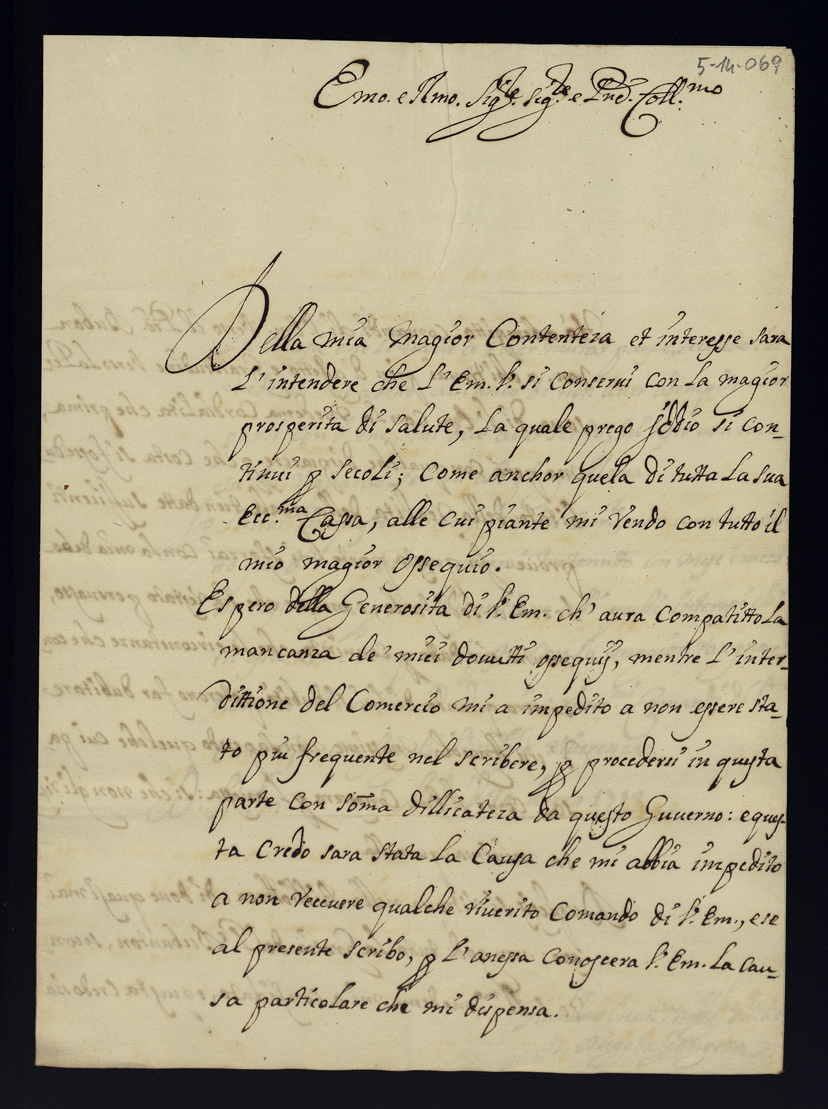 5-14-069
Emo. e Rmo. Sig.re Sig.re e Pnē. Coll.mo
Della mia magior Contenteza et interesse sara
l'intendere che l'Em. V. si conservi con la magior
prosperita di salute, la quale prego Iddio si con-
tinui p secoli; come anchor quela di tutta la sua
Ecc.ma Cassa, alle cui piante mi rendo con tutto il
mio magior ossequio.
Espero della Generosita di V. Em. ch' aura compatitto la
mancanza de' miei douutti ossequij, mentre l'inter-
dittione del Comercio mi a impedito a non essere sta-
to piu frequente nel scribere, p procedersi in questa
parte con som̄a dillicateza da questo Guuerno: e ques-
ta credo sara stata la Causa che mi abbia impedito
a non receuere qualche riuerito Comando di V. Em., e se
al presente scribo, p l'anessa conoscera V. Em. la cau-
sa particolare che mi dispensa.